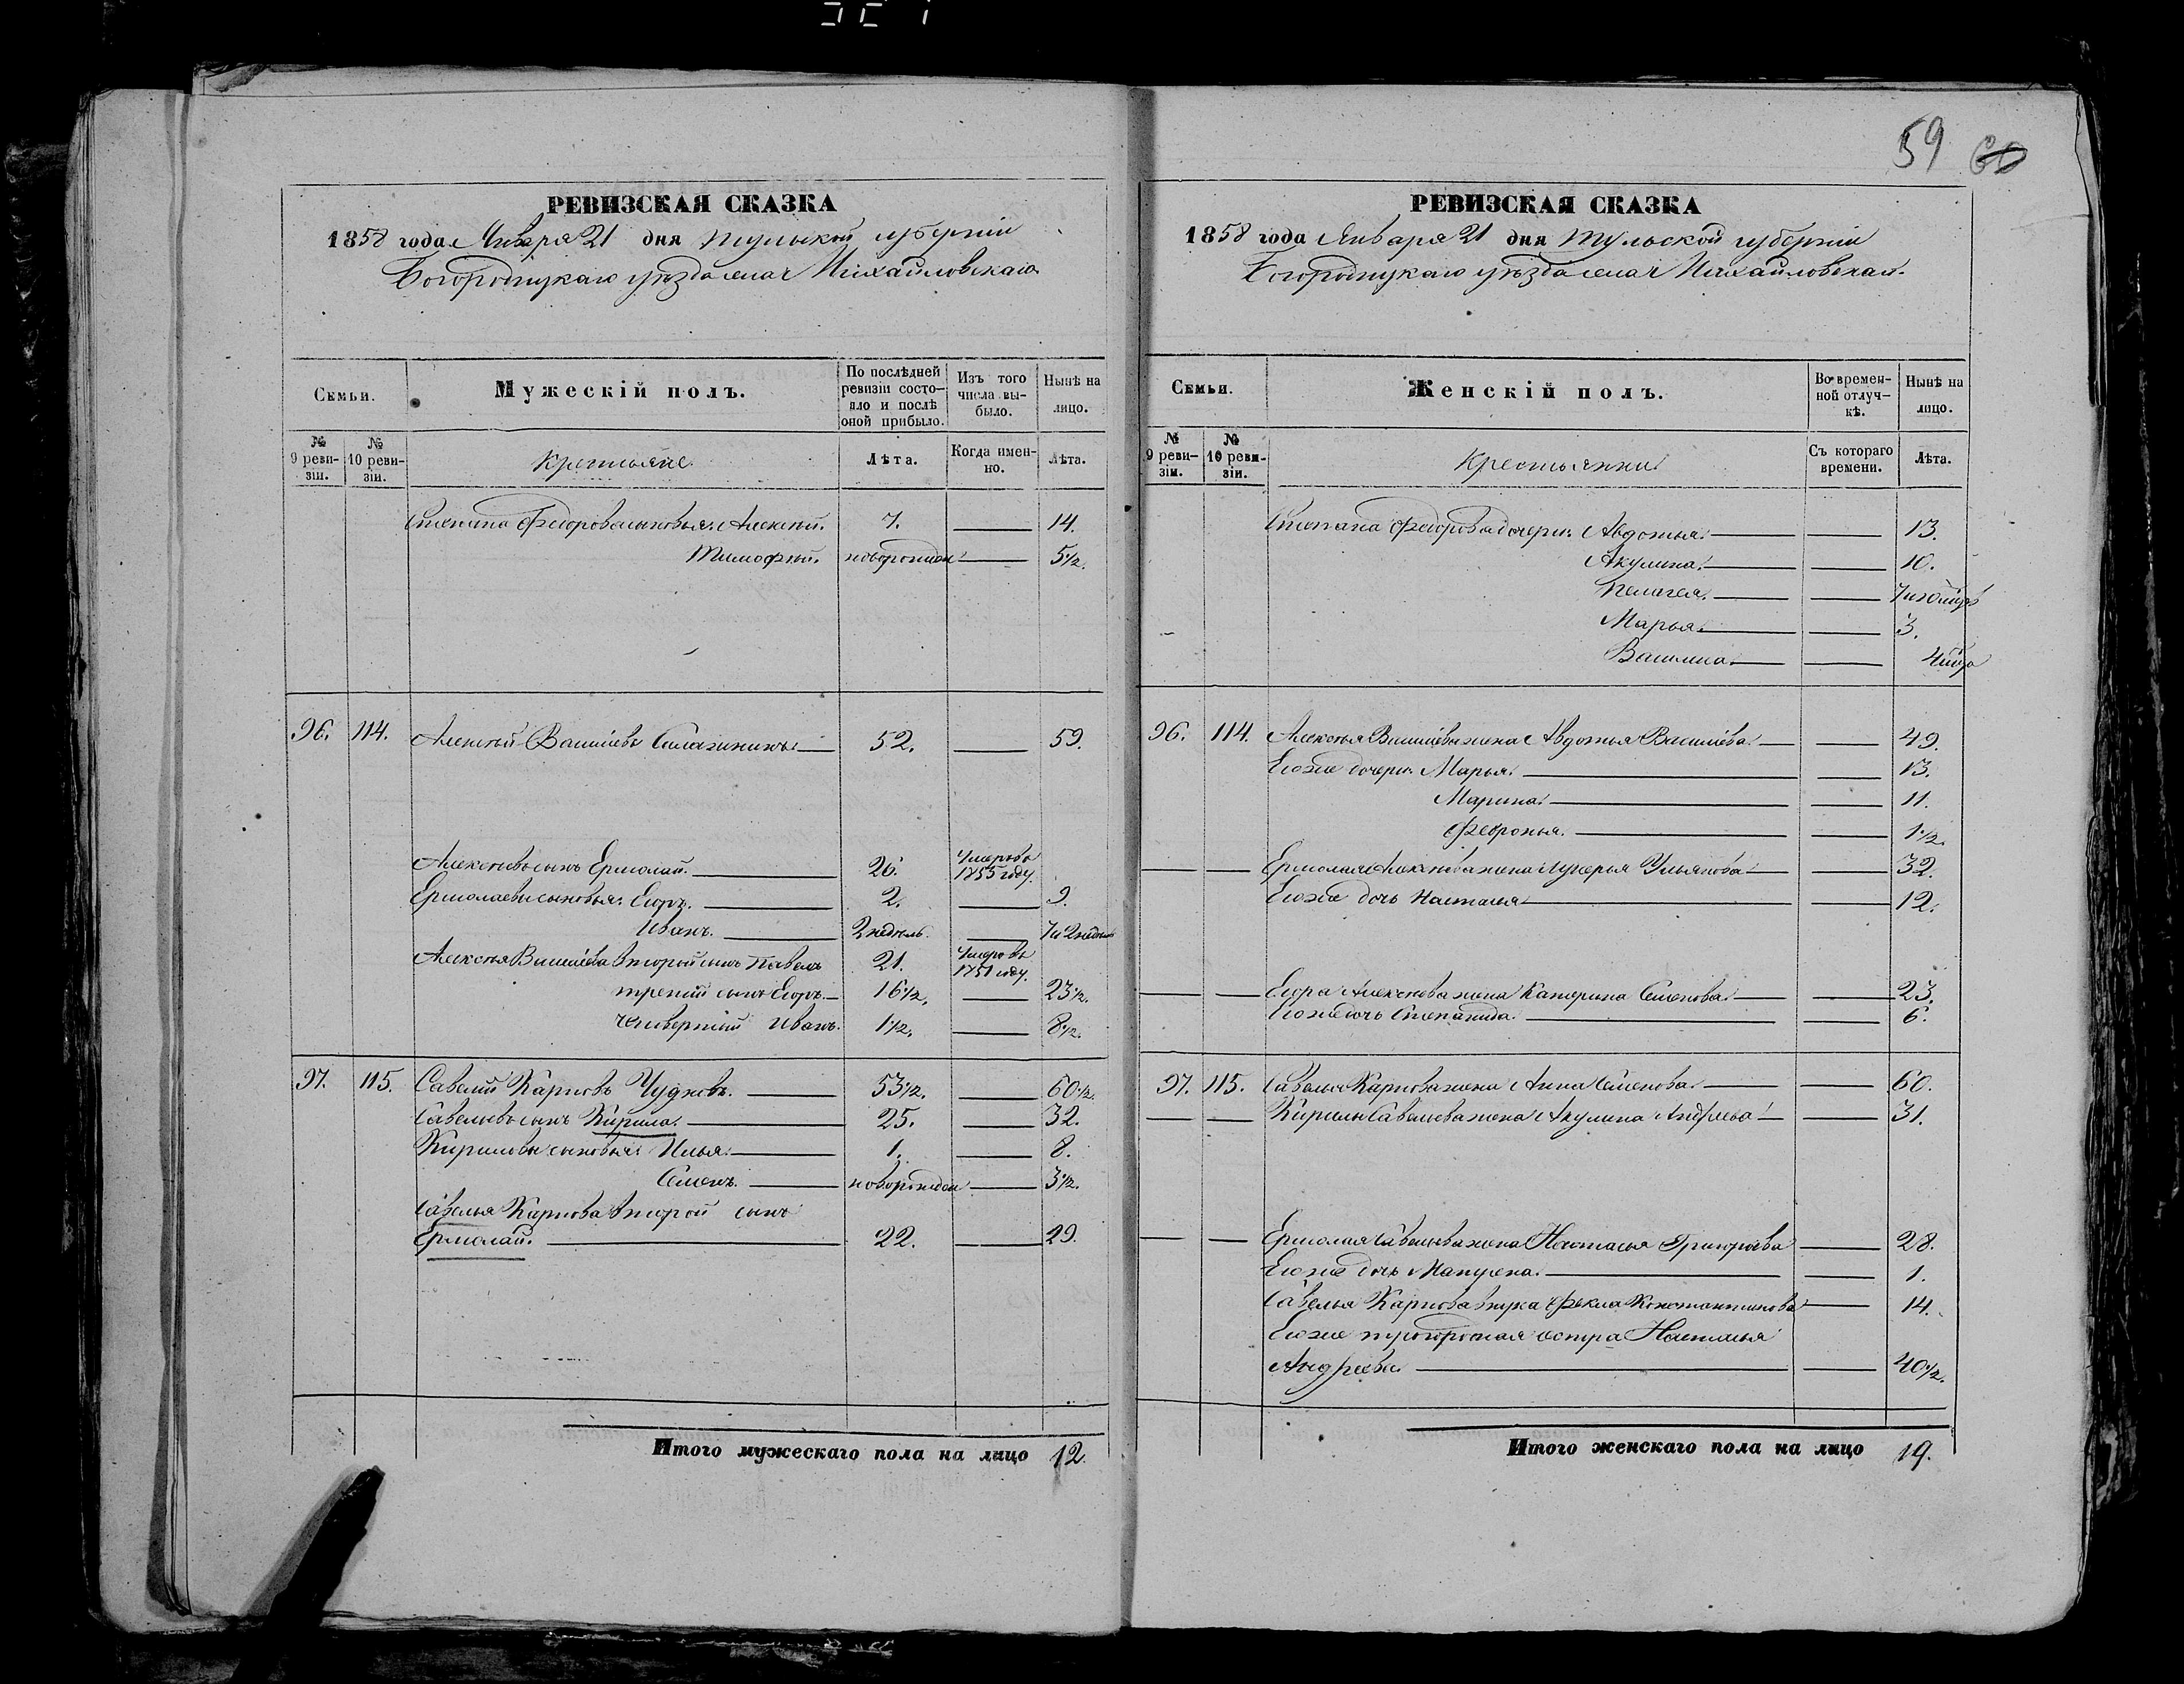 59 60
РЕВИЗСКАЯ СКАЗКА
1858 года Января 21 дня Тульской губерніи
Богородицкаго уѣзда села Михайловскаго
Семьи.
Мужескій полъ.
По послѣдней ревизіи состояло и послѣ оной прибыло.
Изъ того числа выбыло.
Нынѣ на лицо.
№ 9 ревизіи.
№ 10 ревизіи.
Крестьяне
Лѣта.
Когда именно.
Лѣта.
Степана Федорова сыновья: Алексѣй. 7. 14.
Тимофѣй. новорожден 5½.
96. 114. Алексѣй Васильевъ 52. 59.
Алексѣевъ сынъ Ермолай. 26. Умеръ въ 1855 году.
Ермолаевы сыновья: Егоръ. 2. 9.
Иванъ. 2 недѣль 7 и 2 недѣль
Алексѣя Васильева второй сынъ Павелъ 21. Умеръ въ 1851 году.
третій сынъ Егоръ. 16½. 23½.
четвертый Иванъ. 1½. 8½.
97. 115. Савелій Карповъ Чудновъ. 53½. 60½.
Савельевъ сынъ Кирила. 25. 32.
Кириловы сыновья: Илья. 1. 8.
Семенъ. новорожден 3½.
Савелья Карпова второй сынъ
Ермолай. 22. 29.
Итого мужескаго пола на лицо 12.
РЕВИЗСКАЯ СКАЗКА
1858 года Января 21 дня Тульской губерніи
Богородицкаго уѣзда села Михайловскаго.
Семьи.
Женскій полъ.
Во временной отлучкѣ.
Нынѣ на лицо.
№ 9 ревизіи.
№ 10 ревизіи.
Крестьянки
Съ котораго времени.
Лѣта.
Степана Федорова дочери: Авдотья. 13.
Акулина. 10.
Пелагея. 7 и 10 мѣся
Марья. 3.
Василиса. 4 мѣся
96. 114. Алексѣя Васильева жена Авдотья Васильева 49.
Его же дочери: Марья. 13.
Марина. 11.
Февронья. 1½.
Ермолая Алексѣева жена Лукерья Ульянова 32.
Его же дочь Настасья 12.
Егора Алексѣева жена Катерина Семенова 23.
Его же дочь Степанида. 6.
97. 115. Савелья Карпова жена Анна Семенова 60.
Кирилы Савельева жена Акулина Андрѣева 31.
Ермолая Савельева жена Настасья Григорьева 28.
Его же дочь 1.
Савелья Карпова внучка Фекла Константинова 14.
Его же троюродная сестра Настасья
Андреева 40½.
Итого женскаго пола на лицо 19.